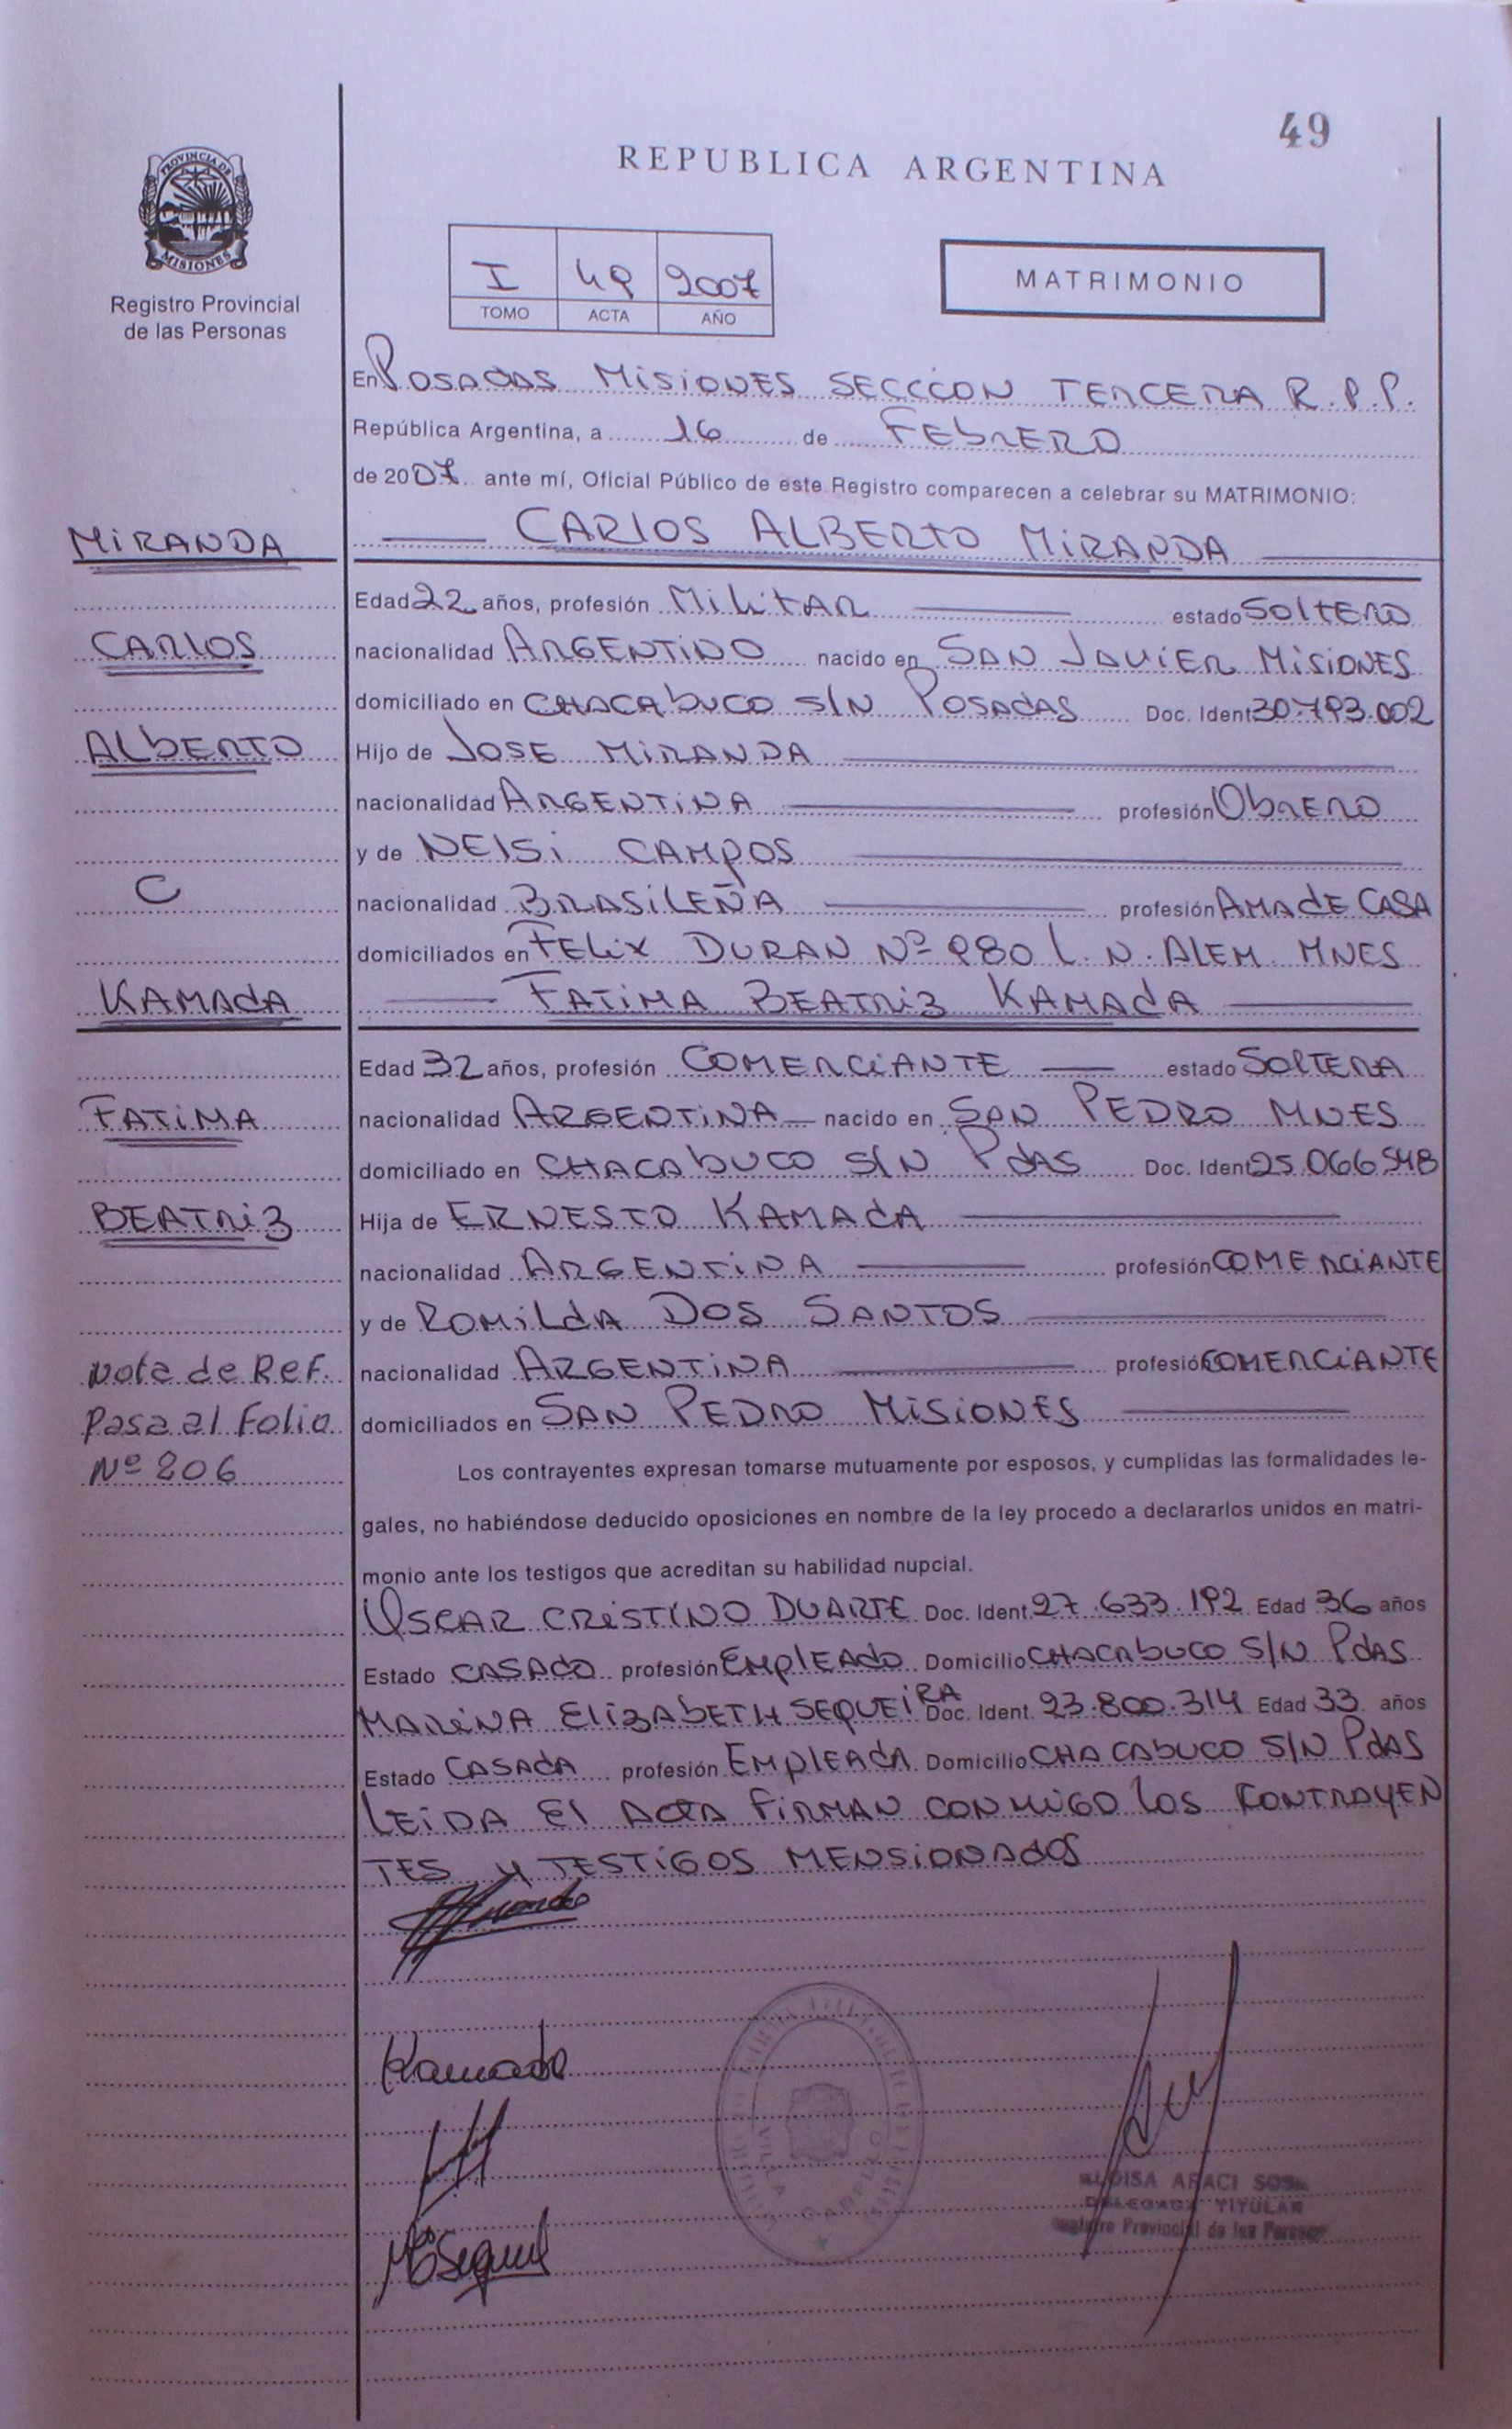 49
REPUBLICA ARGENTINA
PROVINCIA DE
MISIONES
Registro Provincial
de las Personas
I 49 2007
TOMO ACTA AÑO
MATRIMONIO
En POSADAS MISIONES SECCCION TERCERA R.P.P.
República Argentina, a 16 de FEBRERO
de 2007 ante mí, Oficial Público de este Registro comparecen a celebrar su MATRIMONIO:
MIRANDA CARLOS ALBERTO MIRANDA
Edad 22 años, profesión MILITAR estado SOLTERO
CARLOS nacionalidad ARGENTINO nacido en SAN JAVIER MISIONES
domiciliado en CHACABUCO S/N POSADAS Doc. Ident. 30.793.002
ALBERTO Hijo de JOSE MIRANDA
nacionalidad ARGENTINA profesión OBRERO
y de NELSI CAMPOS
C nacionalidad BRASILEÑA profesión AMA DE CASA
domiciliados en FELIX DURAN Nº 980 L.N. ALEM MNES
KAMADA FATIMA BEATRIZ KAMADA
Edad 32 años, profesión COMERCIANTE estado SOLTERA
FATIMA nacionalidad ARGENTINA nacido en SAN PEDRO MNES
domiciliado en CHACABUCO S/N PDAS Doc. Ident. 25.066.548
BEATRIZ Hija de ERNESTO KAMADA
nacionalidad ARGENTINA profesión COMERCIANTE
y de ROMILDA DOS SANTOS
Nota de Ref. nacionalidad ARGENTINA profesión COMERCIANTE
Pasa al Folio domiciliados en SAN PEDRO MISIONES
Nº 206 Los contrayentes expresan tomarse mutuamente por esposos, y cumplidas las formalidades le-
gales, no habiéndose deducido oposiciones en nombre de la ley procedo a declararlos unidos en matri-
monio ante los testigos que acreditan su habilidad nupcial.
OSCAR CRISTINO DUARTE Doc. Ident. 27.633.192 Edad 36 años
Estado CASADO profesión EMPLEADO Domicilio CHACABUCO S/N PDAS
MARINA ELIZABETH SEQUEIRA Doc. Ident. 23.800.314 Edad 33 años
Estado CASADA profesión EMPLEADA Domicilio CHACABUCO S/N PDAS
LEIDA EL ACTA FIRMAN CONMIGO LOS CONTRAYEN
TES Y TESTIGOS MENSIONADOS
Kamada
ARACI SOSA
DELEGADA TITULAR
Registro Provincial de las Personas